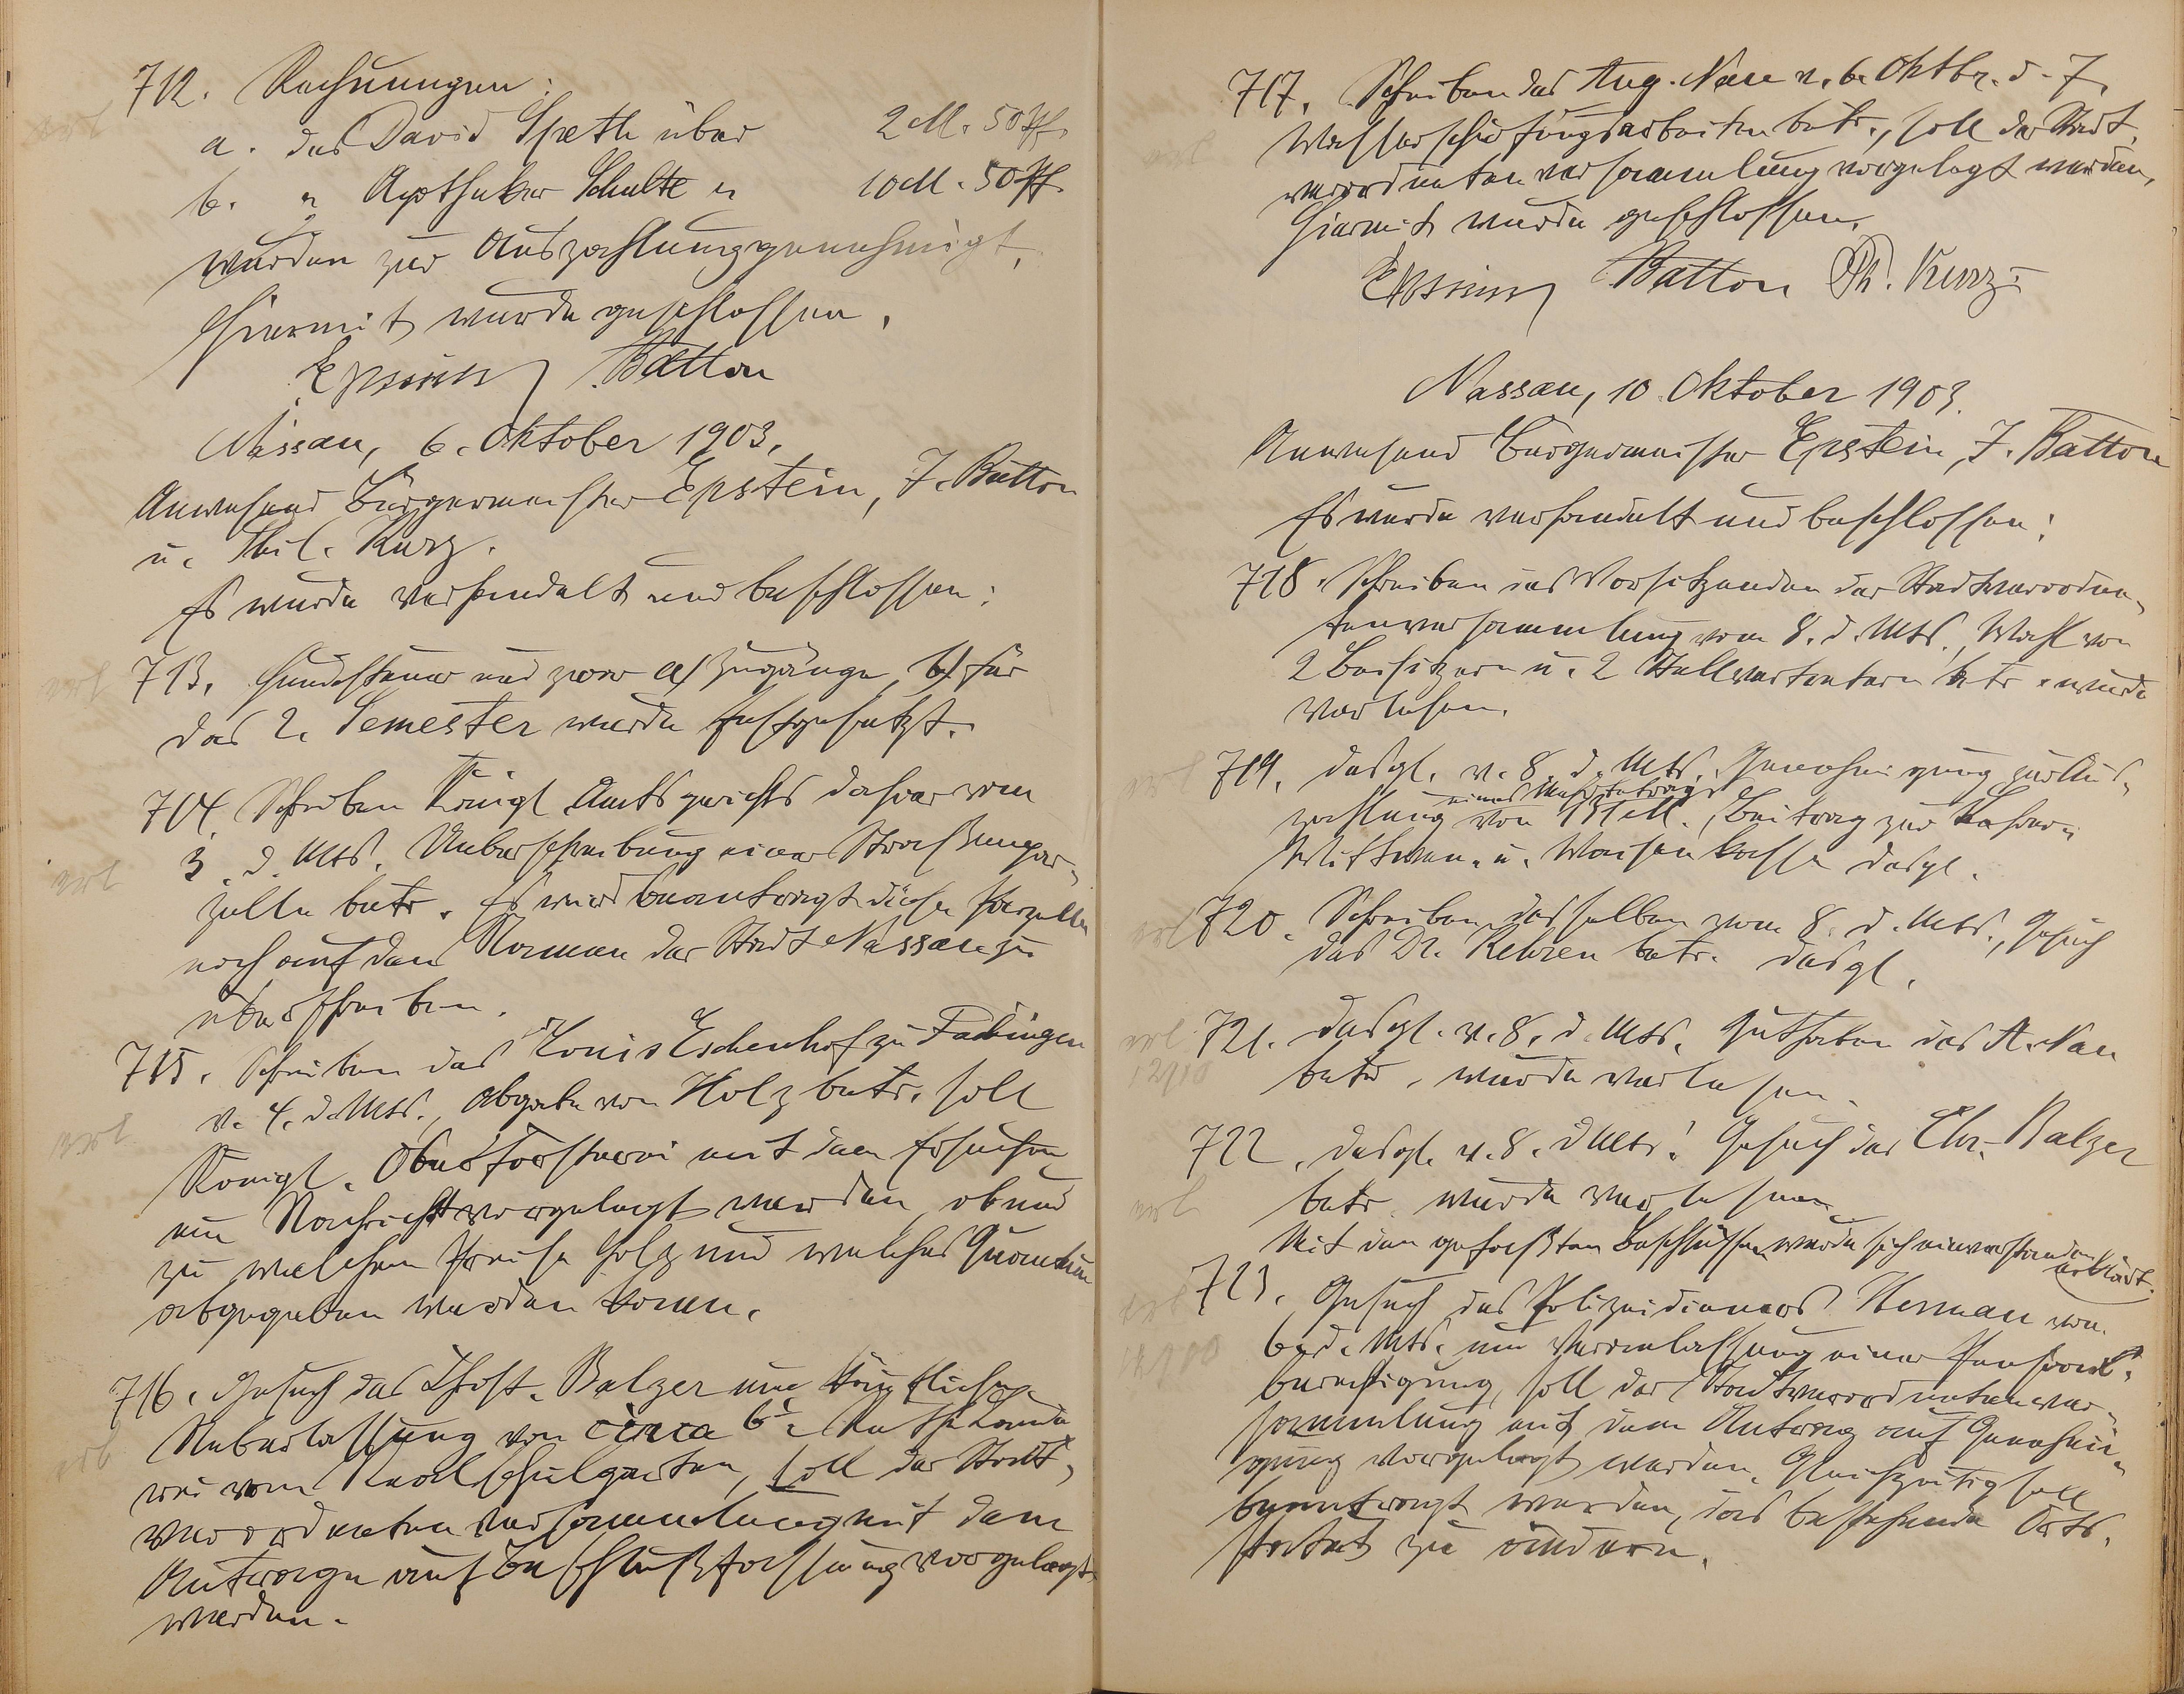 712. Rechnungen:
a. des David Spaeth über 2 M. 50 Pf.
b. " Apotheker Schulte " 10 M. 50 Pf.
wurden zur Auszahlung genehmigt.
Hiermit wurde geschlossen.
Epstein Batton
Nassau, 6. Oktober 1903.
Anwesend Bürgermeister Epstein, J. Batton
u. Phil. Kurz.
Es wurde verhandelt und beschlossen:
erl 713. Hundesteuer und zwar a/ Zugänge b/ für
das 2. Semester wurde festgesetzt.
714. Schreiben Königl Amtsgerichts dahier vom
3. d. Mts. Ueberschreibung einer Straßenpar-
erl zelle betr. Es wird beantragt diese Parzelle
noch auf den Namen der Stadt Nassau zu
überschreiben.
715. Schreiben des Louis Eschenhof zu Fachingen
v. 4. d. Mts., Abgabe von Holz betr. soll
erl Königl. Oberförsterei mit dem Ersuchen
um Nachricht vorgelegt werden ob und
zu welchem Preise Holz und welches Quantum
abgegeben werden kann.
716. Gesuch des Christ. Balzer um käufliche
Ueberlassung von circa 6 Ruthe Lande
erl wie vom Realschulgarten, soll der Stadt-
verordnetenversammlung mit dem
Antrage auf Beschlußfassung vorgelegt
werden.
717. Schreiben des Aug. Nau v. 6. Oktbr. d. J.
erl Wasserschürfungsarbeiten betr., soll der Stadt-
verordnetenversammlung vorgelegt werden.
Hiermit wurde geschlossen.
Epstein Batton Ph. Kurz
Nassau, 10. Oktober 1903.
Anwesend Bürgermeister Epstein, J. Batton
Es wurde verhandelt und beschlossen:
718. Schreiben des Vorsitzenden der Stadtverordne-
tenversammlung vom 8. d. Mts., Wahl von
2 Beisitzern u. 2 Stellvertretern betr. wurde
verlesen.
erl 719. desgl. v. 8. d. Mts. Genehmigung zur Aus-
eines Mehrbetrags
zahlung von M., Beitrag zur Lehrer-
Wittwen- u. Waisenkasse desgl.
erl 720. Schreiben desselben vom 8. d. Mts., Gesuch
des Dr. Kehren betr. desgl.
erl 721. desgl. v. 8. d. Mts. Guthaben des A. Nau
betr. wurde verlesen.
722. desgl. v. 8. d Mts. Gesuch des Chr. Balzer
erl betr. wurde verlesen.
Mit den gefaßten Beschlüssen wurde sich einverstanden
erklärt.
erl 723. Gesuch des Polizeidieners Herman vom
6. d. Mts. um Veranlassung einer Pensions-
berechtigung, soll der Stadtverordnetenver-
sammlung mit dem Antrag auf Genehmi-
gung vorgelegt werden. Gleichzeitig soll
beantragt werden, das bestehende Orts-
statut zu ändern.